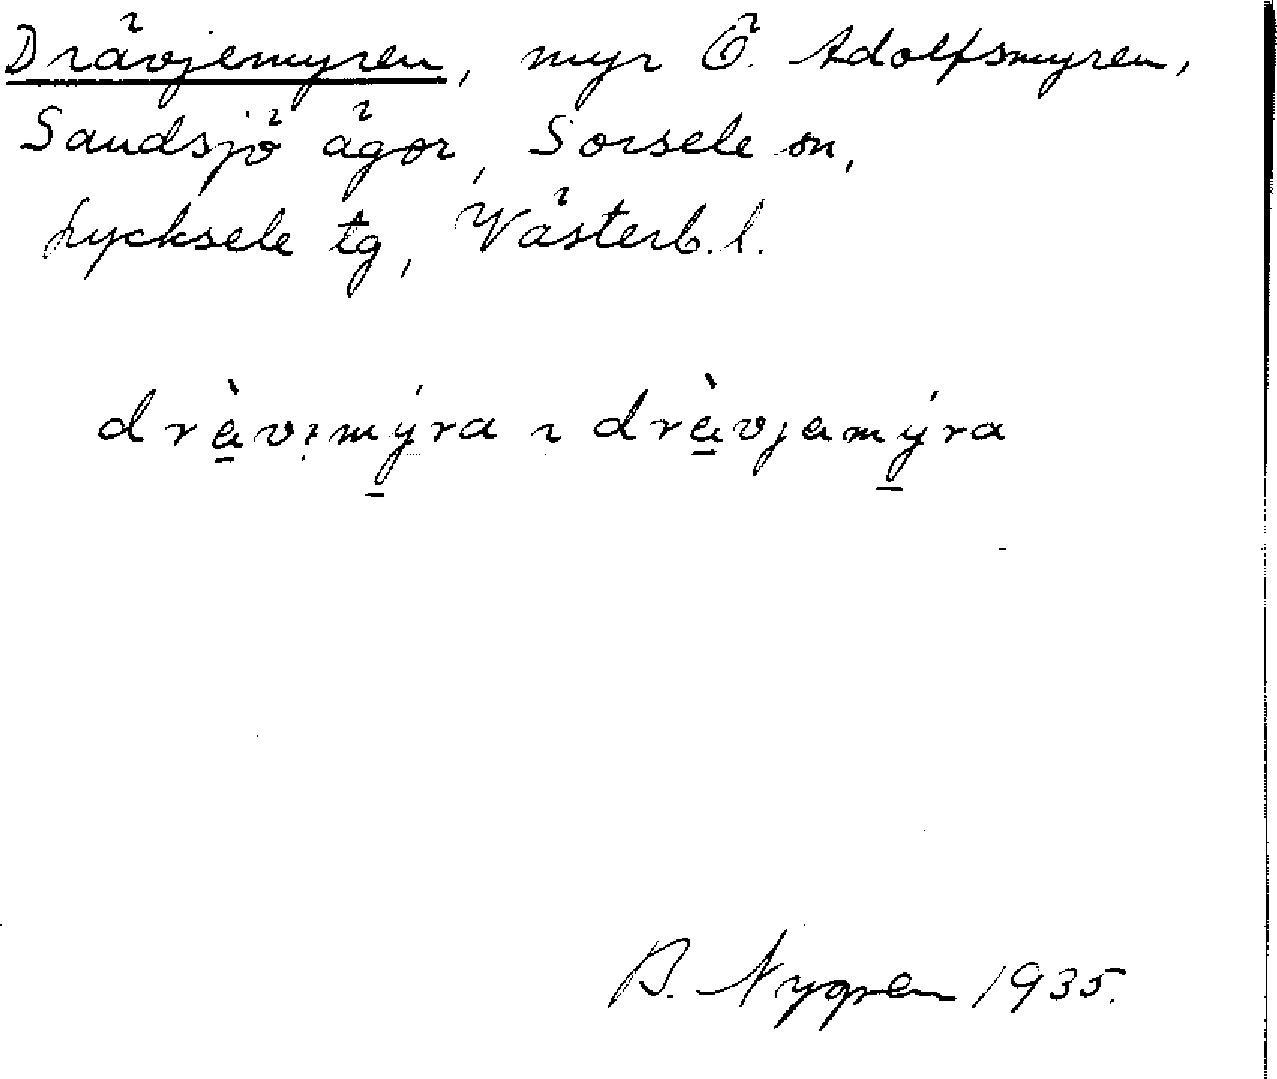 Drävjemyren, myr Ö. Adolfsmyren,
Sandsjö ägor, Sorsele sn,
Lycksele tg, Västerb. l.
dràvi̩mýra ~ dràvjamýra
B. Nygren 1935.